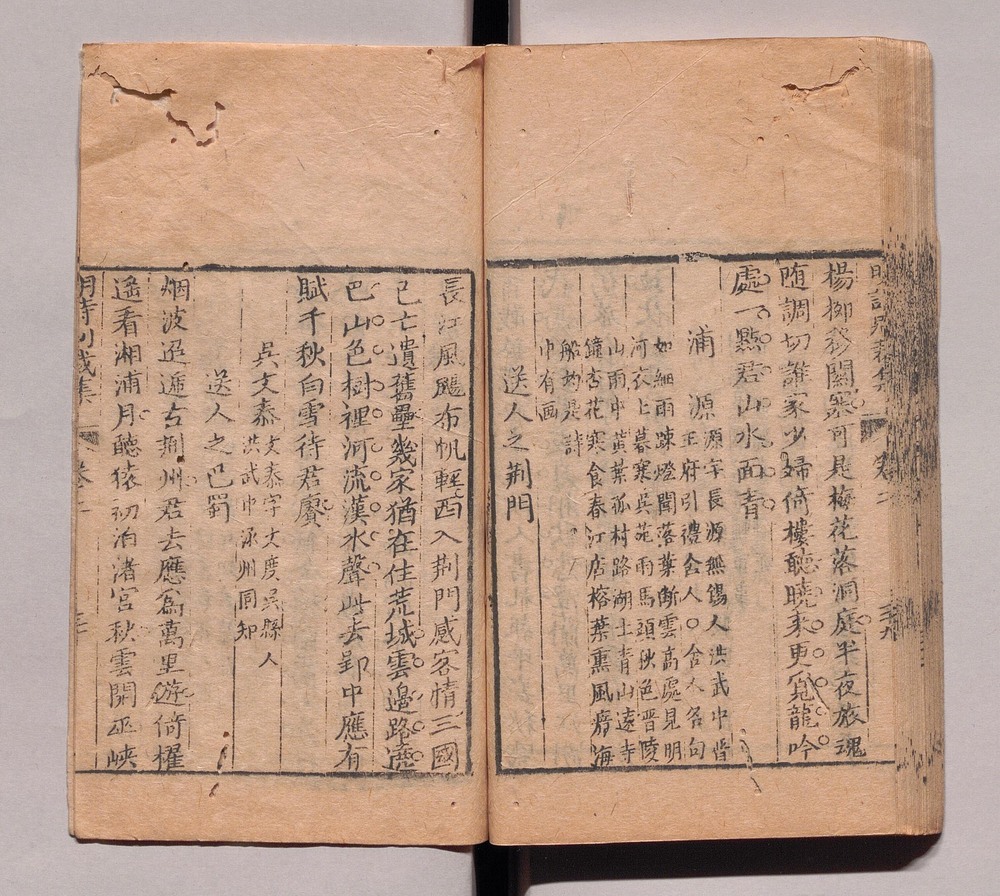 明詩別裁集 卷二
楊柳移關塞可是梅花落洞庭半夜旅魂
隨調切誰家少婦倚樓聽曉來更覓龍吟
處一點君山水面青
浦源 源字長源無錫人洪武中晋
王府引禮舍人○舍人名句
如細雨踈燈聞落葉斷雲高處見明
河衣上暮寒吳苑雨馬頭秋色晋陵
山雨中黃葉孤村路湖上青山遠寺
鐘杏花寒食春江店榕葉熏風瘴海
船均是詩
中有画
送人之荆門
長江風颺布帆輕西入荆門感客情三國
已亡遺舊壘幾家猶在住荒城雲邊路遶
巴山色樹裡河流漢水聲此去郢中應有
賦千秋白雪待君賡
吳文泰 文泰字文度吳縣人
洪武中涿州同知
送人之巴蜀
烟波迢遞古荆州君去應為萬里遊倚櫂
遥看湘浦月聽猿初泊渚宮秋雲開巫峽
明詩別裁集 卷二